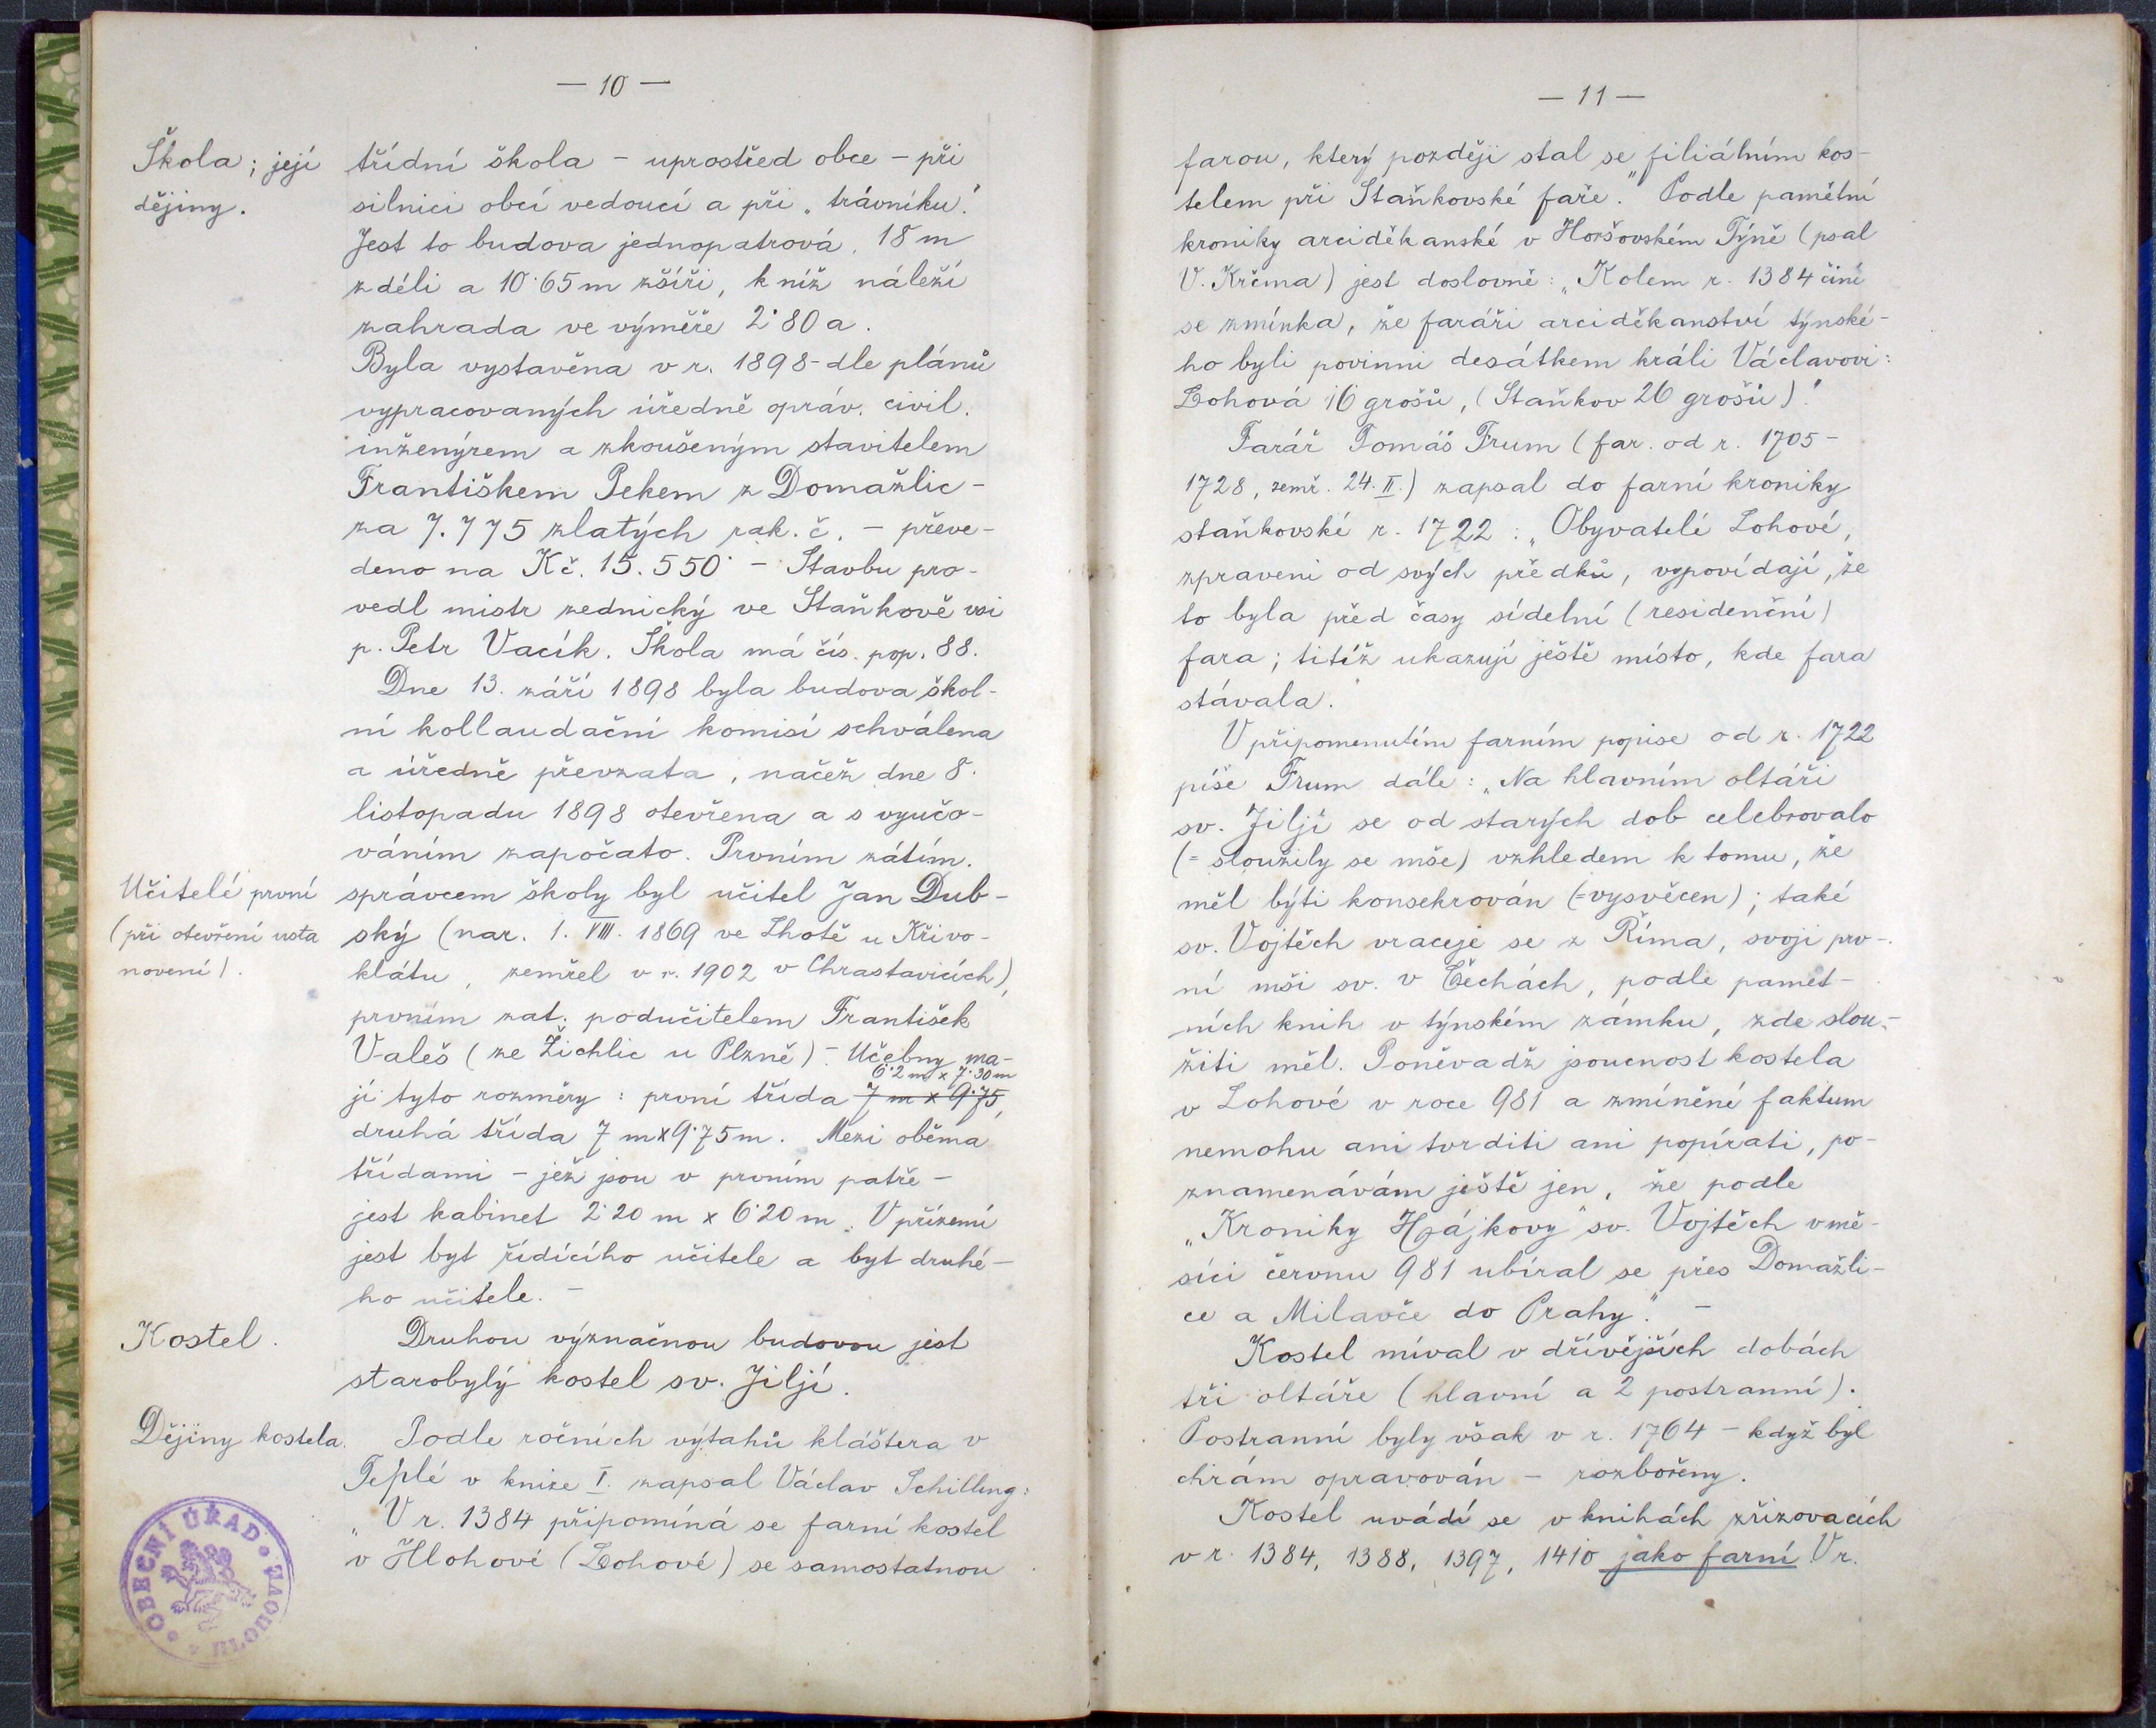 — 10 —
Škola; její
dějiny.
třídní škola – uprostřed obce – při
silnici obcí vedoucí a při „trávníku".
Jest to budova jednopatrová, 18 m
zdéli a 10·65 m zšíři, k níž náleží
zahrada ve výměře 2·80 a.
Byla vystavěna v r. 1898 – dle plánů
vypracovaných úředně opráv. civil.
inženýrem a zkoušeným stavitelem
Františkem Pekem z Domažlic –
za 7.775 zlatých rak. č. – převe-
deno na Kč. 15.550·– Stavbu pro-
vedl mistr zednický ve Staňkově vsi
p. Petr Vacík. Škola má čís. pop. 88.
Dne 13. září 1898 byla budova škol-
ní kollaudační komisí schválena
a úředně převzata, načež dne 8.
listopadu 1898 otevřena a s vyučo-
váním započato. Prvním zátím.
Učitelé první
(při otevření usta
novení).
správcem školy byl učitel Jan Dub-
ský (nar. 1. VIII. 1869 ve Lhotě u Křivo-
klátu, zemřel v r. 1902 v Chrastavicích),
prvním zat. podučitelem František
Valeš (ze Žichlic u Plzně) – Učebny ma-
6·2 m x 7·30 m
jí tyto rozměry: první třída 7 m x 9·75,
druhá třída 7 m x 9·75 m. Mezi oběma
třídami – jež jsou v prvním patře –
jest kabinet 2·20 m x 6·20 m. V přízemí
jest byt řídícího učitele a byt druhé-
ho učitele. –
Kostel.
Druhou význačnou budovou jest
starobylý kostel sv. Jiljí.
Dějiny kostela.
Podle ročních výtahů kláštera v
Teplé v knize I. zapsal Václav Schilling:
„V r. 1384 připomíná se farní kostel
v Hlohové (Lohové) se samostatnou
OBECNÍ ÚŘAD
HLOHOVÁ
— 11 —
farou, který později stal se filiálním kos-
telem při Staňkovské faře." Podle pamětní
kroniky arciděkanské v Horšovském Týně (psal
V. Krčma) jest doslovně: „Kolem r. 1384 činí
se zmínka, že faráři arciděkanství týnské-
ho byli povinni desátkem králi Václavovi:
Lohová 16 grošů, (Staňkov 26 grošů)."
Farář Tomáš Frum (far. od r. 1705–
1728, zemř. 24. II.) zapsal do farní kroniky
staňkovské r. 1722: „Obyvatelé Lohové,
zpraveni od svých předků, vypovídají, že
to byla před časy sídelní (residenční)
fara; titíž ukazují ještě místo, kde fara
stávala."
V připomenutém farním popise od r. 1722
píše Frum dále: „Na hlavním oltáři
sv. Jiljí se od starých dob celebrovalo
(= sloužily se mše) vzhledem k tomu, že
měl býti konsekrován (=vysvěcen); také
sv. Vojtěch vraceje se z Říma, svoji prv-
ní mši sv. v Čechách, podle pamět-
ních knih v týnském zámku, zde slou-
žiti měl. Poněvadž jsoucnost kostela
v Lohové v roce 981 a zmíněné faktum
nemohu ani tvrditi ani popírati, po-
znamenávám ještě jen, že podle
„Kroniky Hájkovy" sv. Vojtěch v mě-
síci červnu 981 ubíral se přes Domažli-
ce a Milavče do Prahy." –
Kostel míval v dřívějších dobách
tři oltáře (hlavní a 2 postranní).
Postranní byly však v r. 1764 – když byl
chrám opravován – rozbořeny.
Kostel uvádí se v knihách zřizovacích
v r. 1384, 1388, 1397, 1410 jako farní. V r.